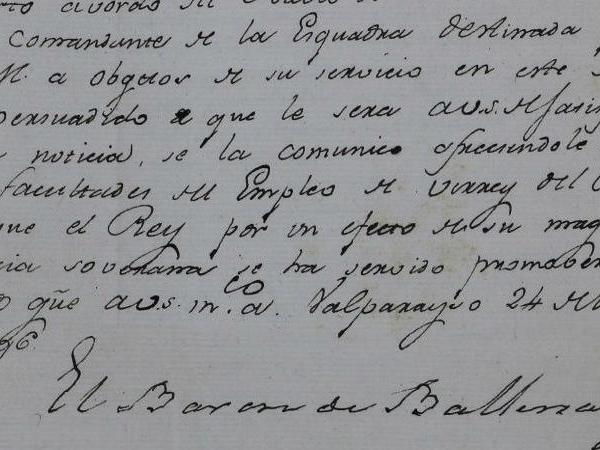 acordo del
Comandante de la Esquadra destinada
M. a obgetos de su servicio en este
persuadido a que le sera a V.S. de
noticia, se la comunico ofreciendole
facultades del Empleo de Virrey del
que el Rey por un efecto de su mag
cia soverana se ha servido promober
gũe a V.S. m.s a.s Valparayso 24 de
96.
El Baron de Ballena